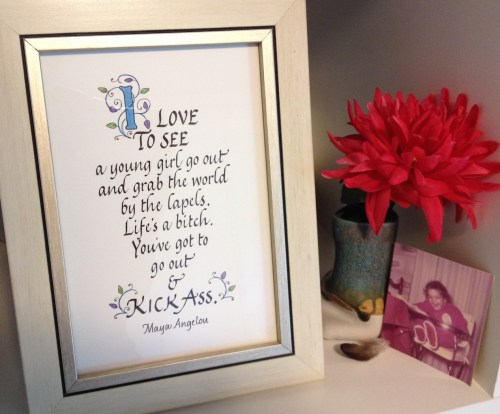 I LOVE
TO SEE
a young girl go out
and grab the world
by the lapels.
Life's a bitch.
You've got to
go out
&
KICK ASS.
Maya Angelou